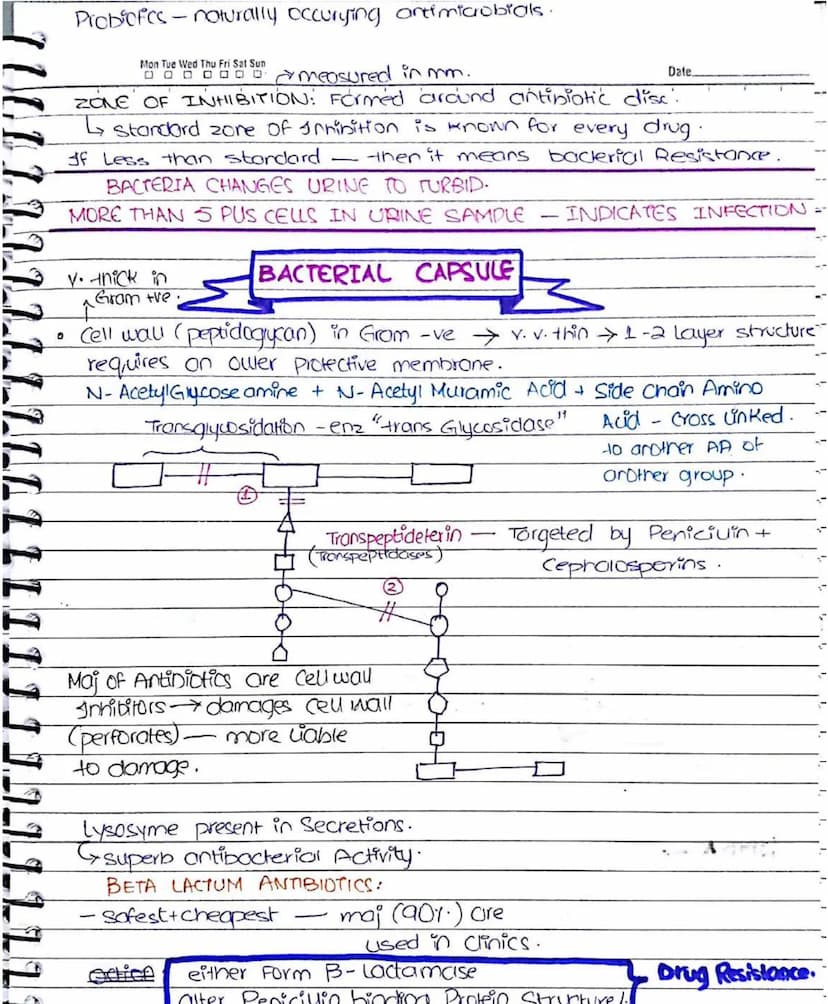 Probiotics – naturally occurying antimicrobials.
Mon Tue Wed Thu Fri Sat Sun
→ measured in mm.
Date
ZONE OF INHIBITION: Formed around antibiotic disc.
↳ Standard zone of Inhibition is known for every drug.
If less than standard — then it means bacterial Resistance.
BACTERIA CHANGES URINE TO TURBID.
MORE THAN 5 PUS CELLS IN URINE SAMPLE – INDICATES INFECTION
BACTERIAL CAPSULE
v. thick in
Gram +ve.
• Cell wall (peptidoglycan) in Gram -ve → v. v. thin → 1-2 Layer structure
requires an outer protective membrane.
N-AcetylGlycoseamine + N-Acetyl Muramic Acid + Side Chain Amino
Acid – Cross linked.
to another AA of
another group.
Transglycosidation – enz "trans Glycosidase"
①
Transpeptideterin — Targeted by Penicillin +
(Transpeptidases)
Cephalosperins.
②
Maj of Antibiotics are cell wall
Inhibitors → damages cell wall
(perforates) — more liable
to damage.
Lysosyme present in Secretions.
↳ superb antibacterial Activity.
BETA LACTUM ANTIBIOTICS:
- safest+cheapest — maj (90%) are
used in clinics.
either Form B-lactamase
Drug Resistance.
alter Penicillin binding Protein Structure/.